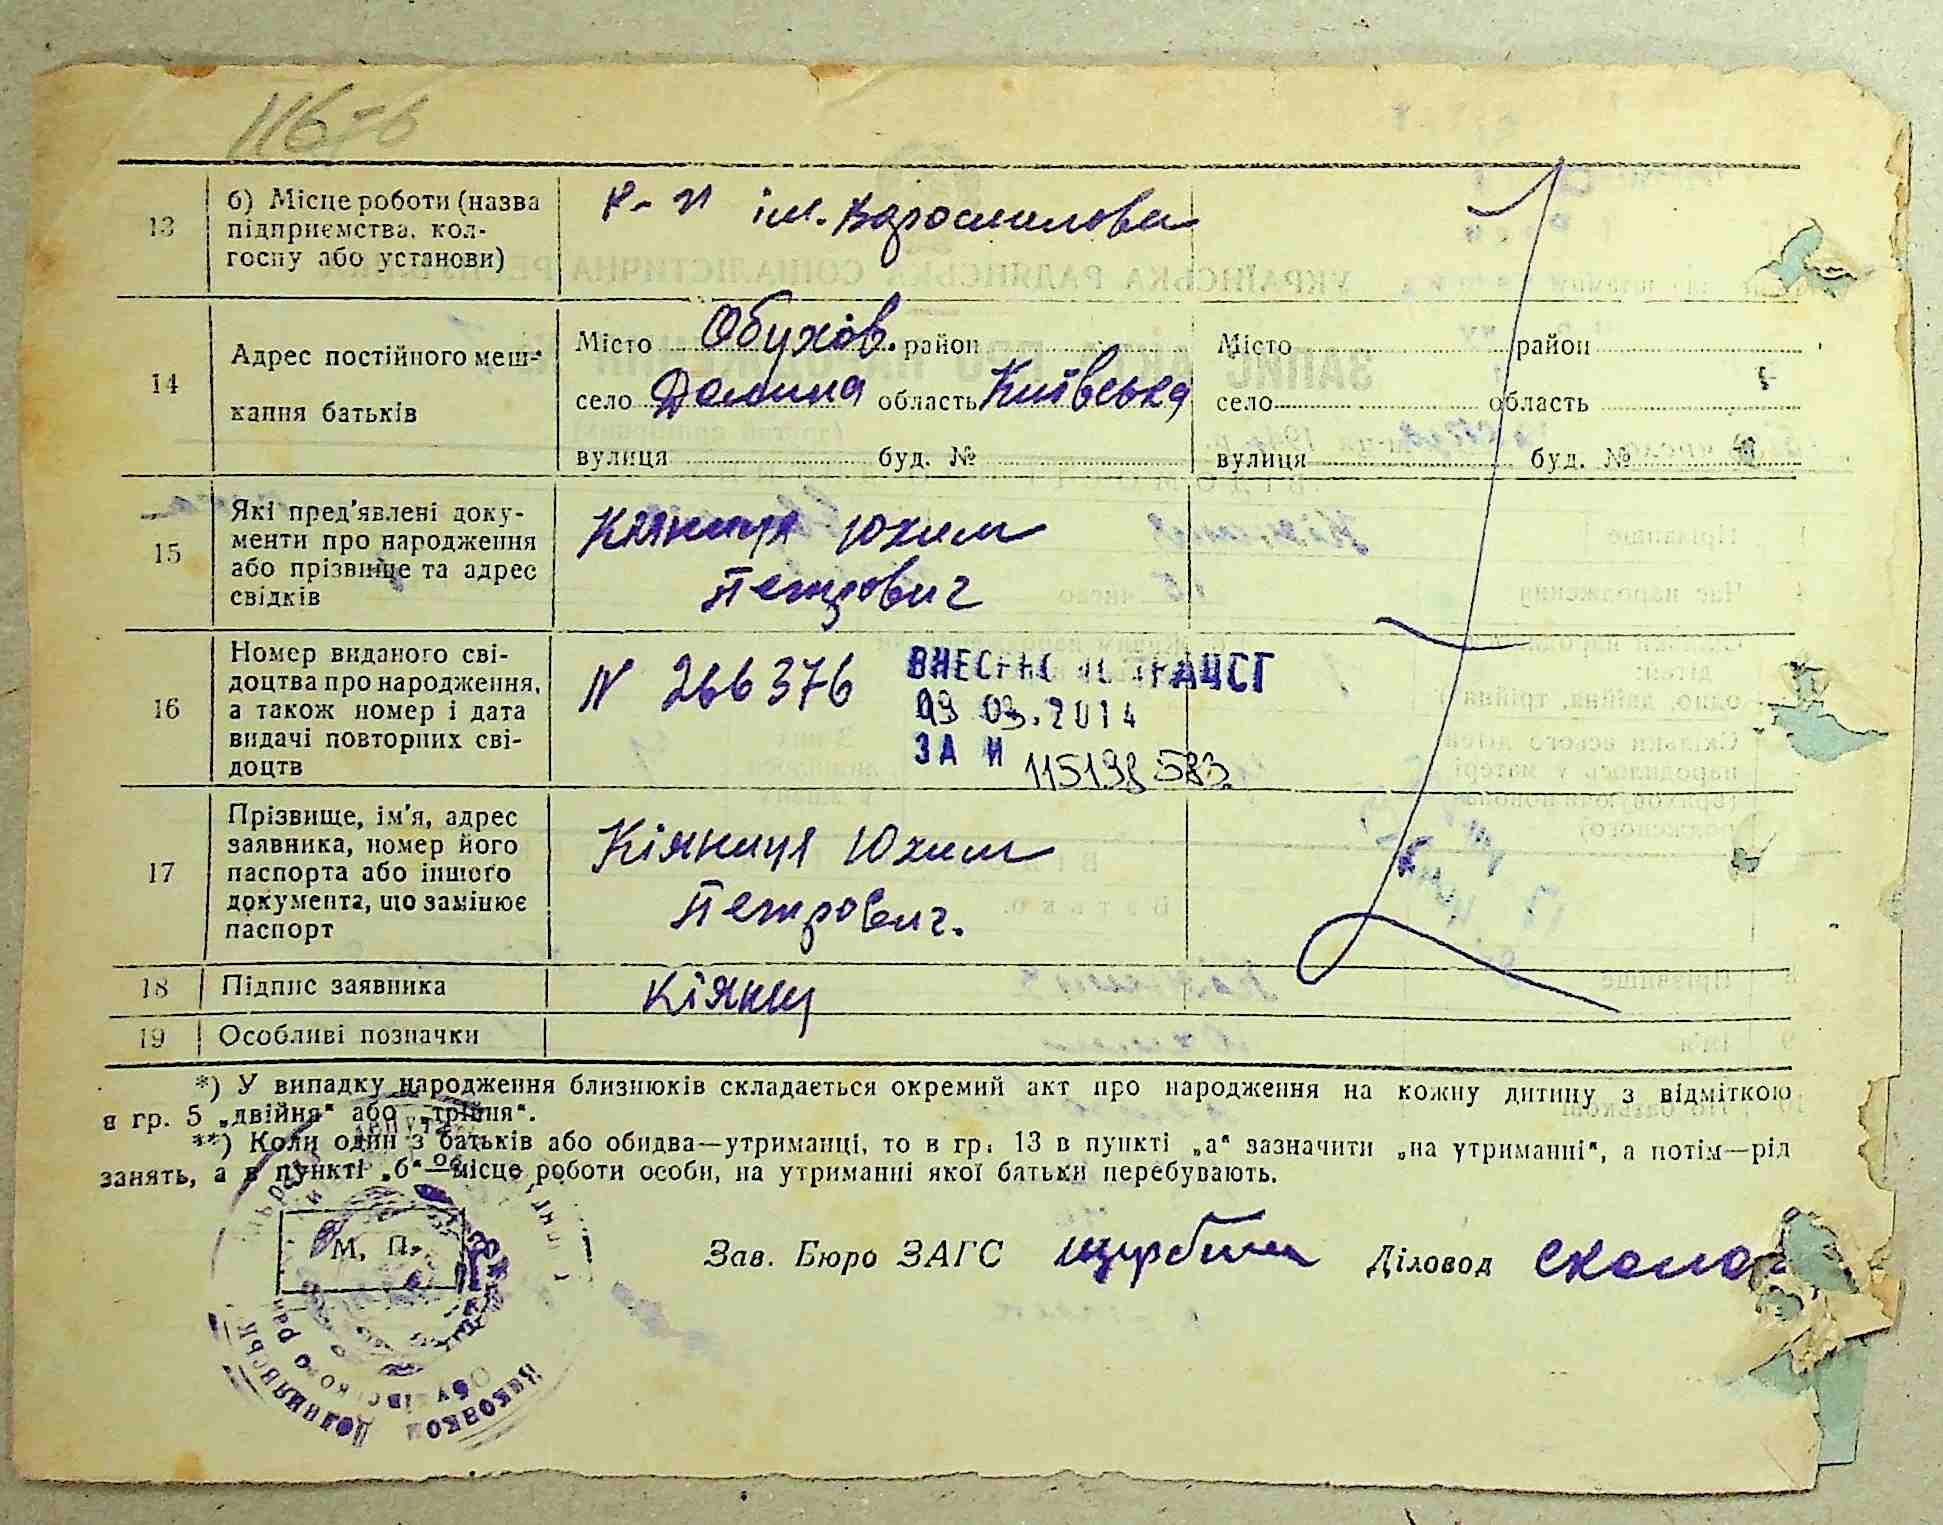 116-б
13
б) Місце роботи (назва
підприємства, кол-
госпу або установи)
к-п ім. Ворошилова
14
Адрес постійного меш-
кання батьків
Місто Обухов. район
село Долина область Київська
вулиця буд. №
Місто район
село область
вулиця буд. №
15
Які пред'явлені доку-
менти про народження
або прізвище та адрес
свідків
Кіяниця Юхим
Петрович
16
Номер виданого сві-
доцтва про народження,
а також номер і дата
видачі повторних сві-
доцтв
N 266376
ВНЕСЕНО ДРАЦСГ
03.2014
ЗА N 115198583
17
Прізвище, ім'я, адрес
заявника, номер його
паспорта або іншого
документа, що замінює
паспорт
Кіяниця Юхим
Петрович.
18
Підпис заявника
Кіяниц
19
Особливі позначки
*) У випадку народження близнюків складається окремий акт про народження на кожну дитину з відміткою
в гр. 5 „двійня“ або „трійня“.
**) Коли один з батьків або обидва—утриманці, то в гр. 13 в пункті „а“ зазначити „на утриманні“, а потім—рід
занять, а в пункті „б“—місце роботи особи, на утриманні якої батьки перебувають.
М. П.
Зав. Бюро ЗАГС Діловод